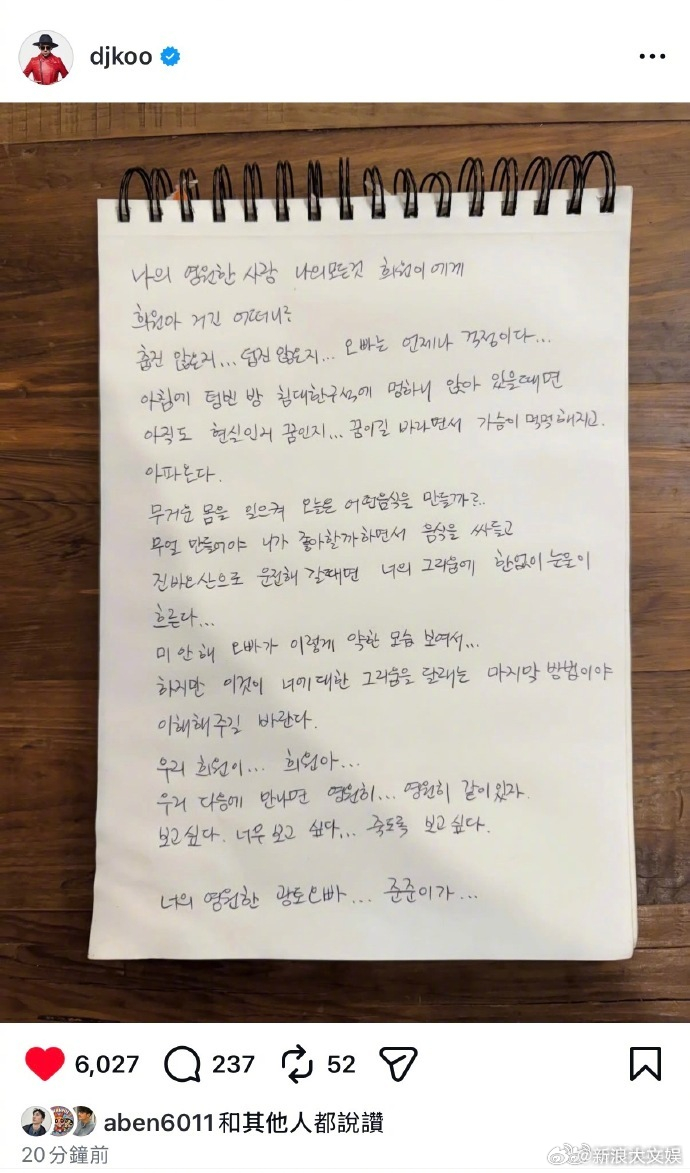 djkoo
나의 영원한 사랑 나의모든것 희원이에게
희원아 거긴 어떠니?
춥진 않은지... 덥진 않은지... 오빠는 언제나 걱정이다...
아침에 텅빈 방 침대한구석에 멍하니 앉아 있을때면
아직도 현실인지 꿈인지... 꿈이길 바라면서 가슴이 먹먹해지고.
아파온다.
무거운 몸을 일으켜 오늘은 어떤음식을 만들까?..
무얼 만들어야 니가 좋아할까하면서 음식을 싸들고
진바오산으로 운전해 갈때면 너의 그리움에 한없이 눈물이
흐른다...
미안해 오빠가 이렇게 약한 모습 보여서...
하지만 이것이 너에대한 그리움을 달래는 마지막 방법이야
이해해주길 바란다.
우리 희원이... 희원아...
우리 다음에 만나면 영원히... 영원히 같이있자.
보고싶다. 너무 보고 싶다... 죽도록 보고싶다.
너의 영원한 광토오빠... 준준이가...
6,027 237 52
aben6011和其他人都說讚
20分鐘前
新浪大文娱